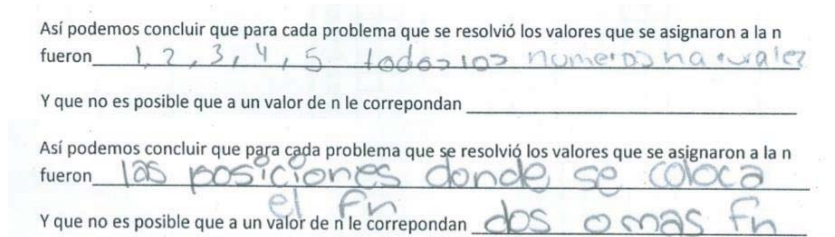 Así podemos concluir que para cada problema que se resolvió los valores que se asignaron a la n
fueron 1, 2, 3, 4, 5 todos los numeros naturales
Y que no es posible que a un valor de n le correpondan
Así podemos concluir que para cada problema que se resolvió los valores que se asignaron a la n
fueron las posiciones donde se coloca
el Fn
Y que no es posible que a un valor de n le correpondan dos o mas Fn